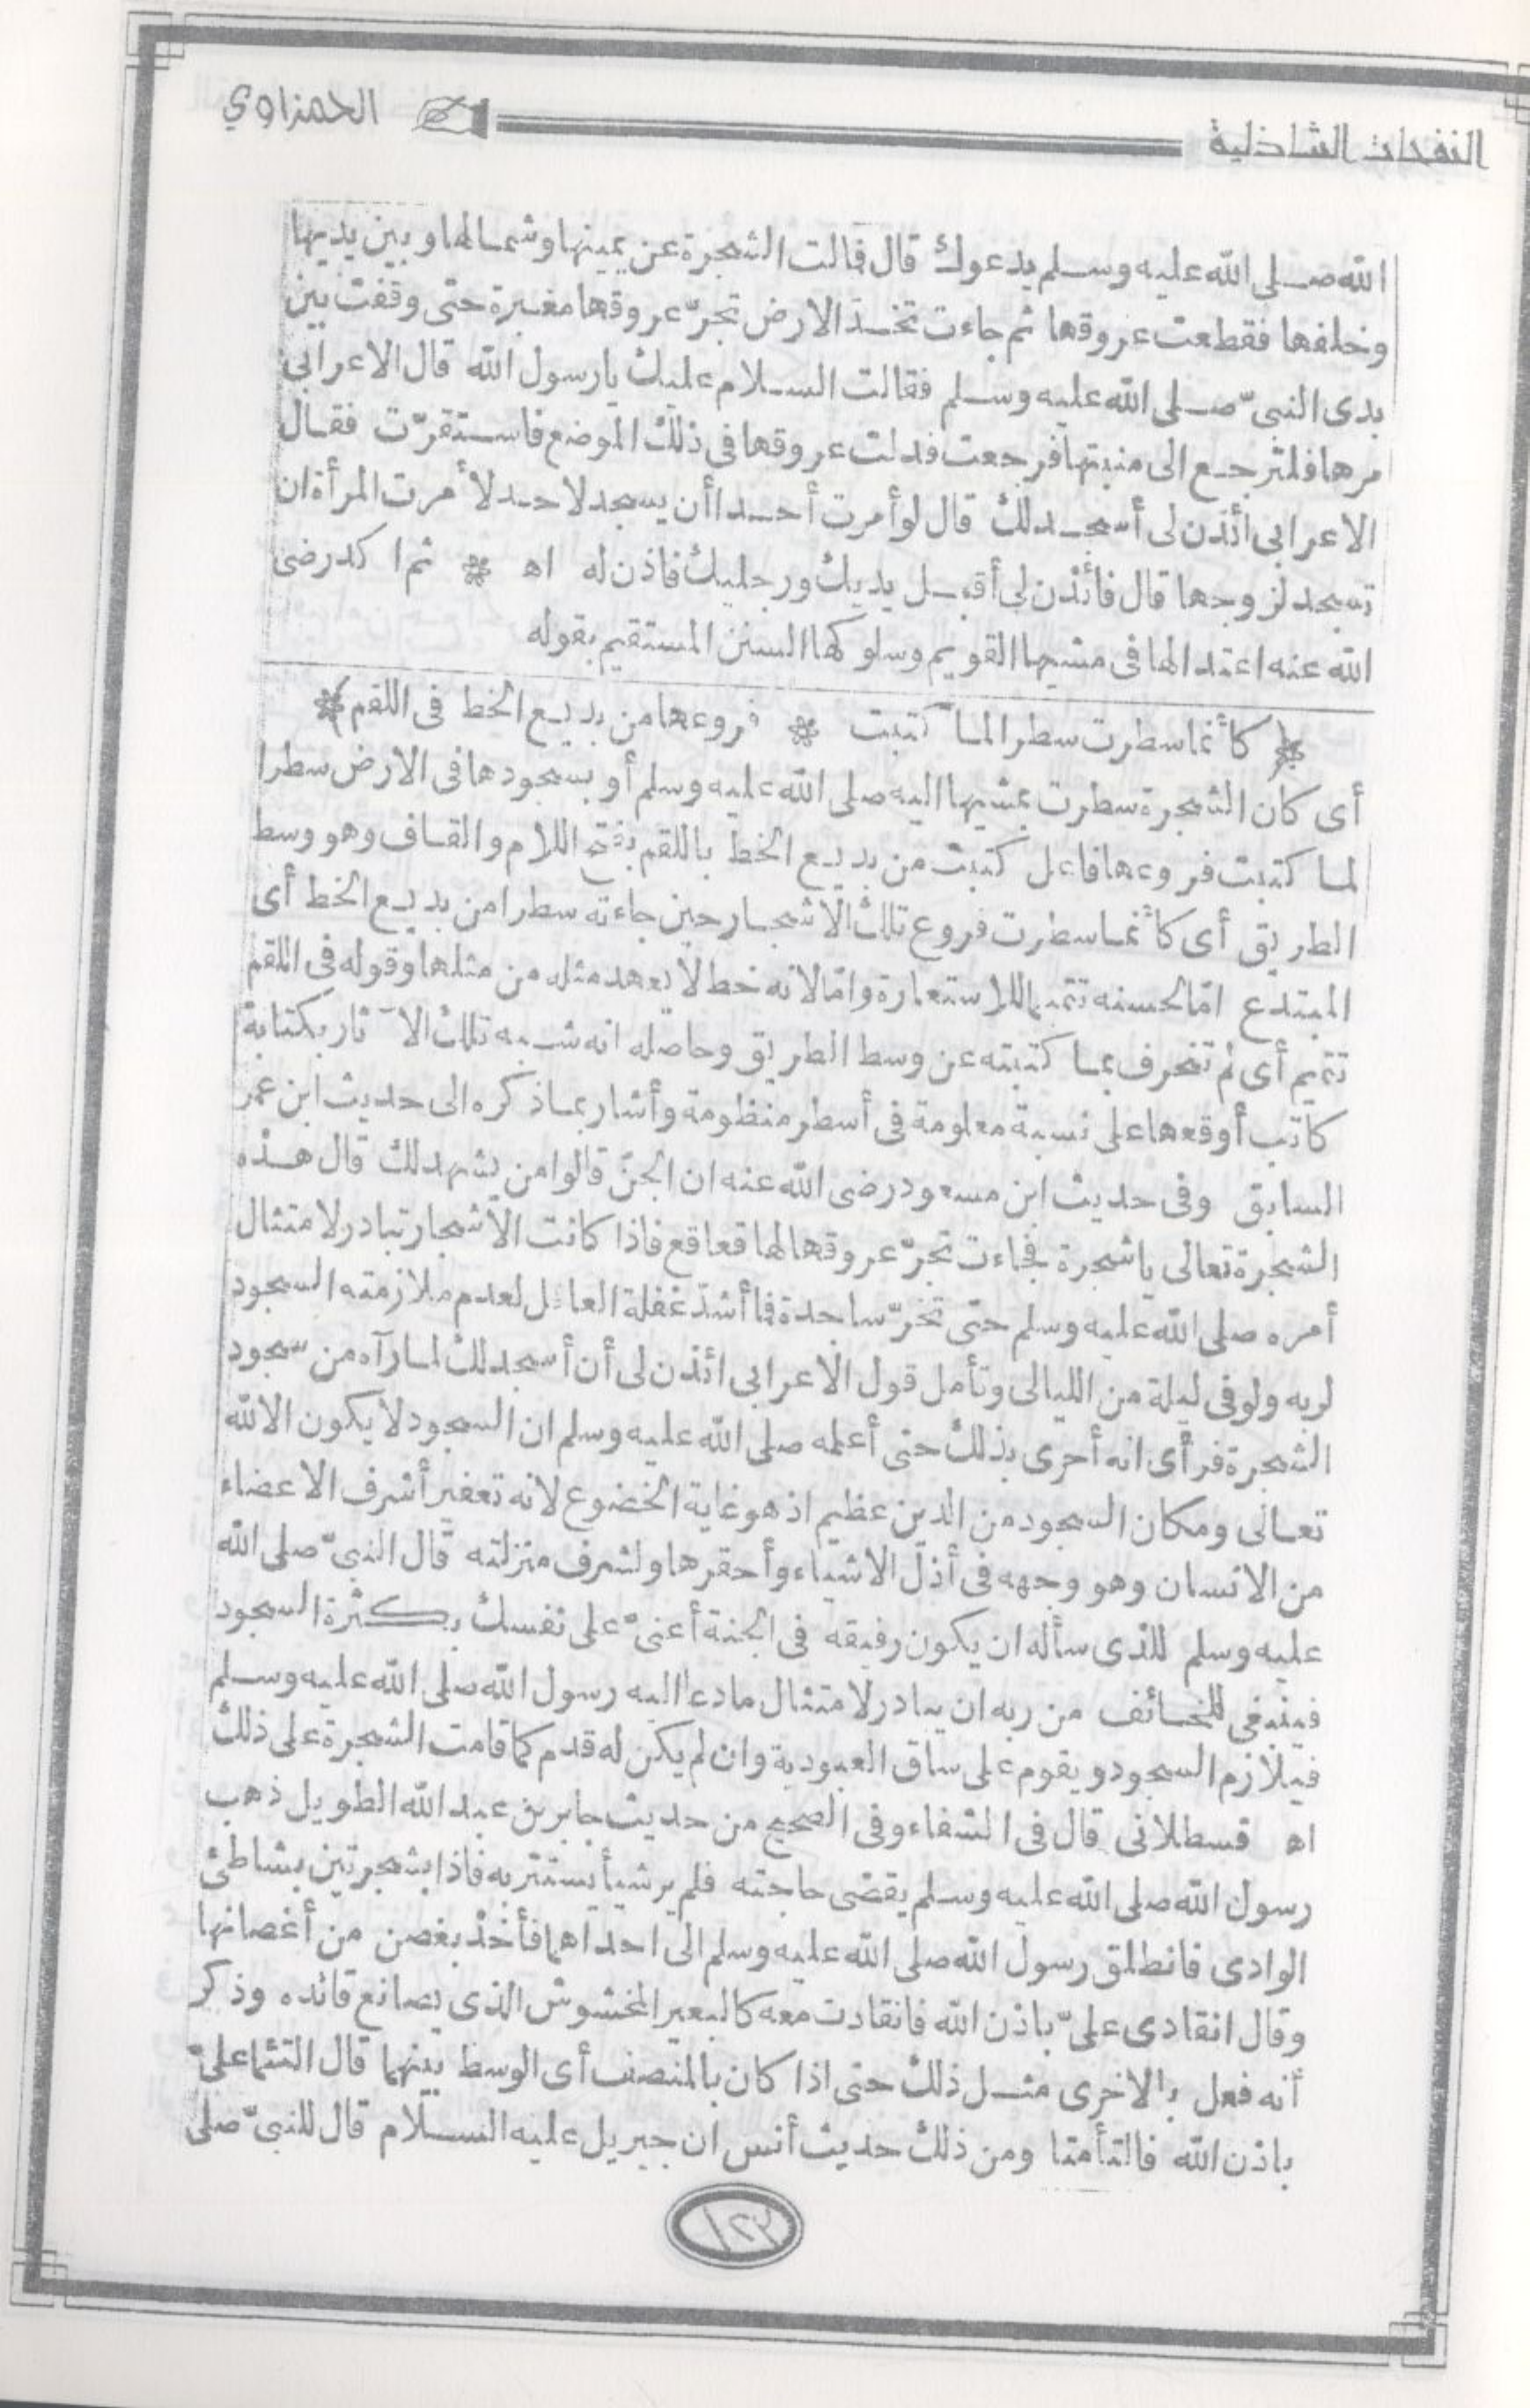 النفحات الشاذلية
الحمزاوي
الله صلى الله عليه وسلم يدعوك قال فمالت الشجرة عن يمينها وشمالها وبين يديها
وخلفها فقطعت عروقها ثم جاءت تخدّ الارض تجرّ عروقها مغبرة حتى وقفت بين
يدى النبىّ صلى الله عليه وسلم فقالت السلام عليك يارسول الله قال الاعرابى
مرها فلترجع الى منبتها فرجعت فدلت عروقها فى ذلك الموضع فاستقرّت فقال
الاعرابى ائذن لى أسجد لك قال لو أمرت أحدا أن يسجد لاحد لأمرت المرأة ان
تسجد لزوجها قال فائذن لى أقبل يديك ورجليك فاذن له اه * ثم اكد رضى
الله عنه اعتدالها فى مشيها القويم وسلوكها السنن المستقيم بقوله
* كأنما سطرت سطرا لما كتبت * فروعها من بديع الخط فى اللقم *
أى كان الشجرة سطرت بمشيها اليه صلى الله عليه وسلم أو بسجودها فى الارض سطرا
لما كتبت فروعها فاعل كتبت من بديع الخط باللقم بفتح اللام والقاف وهو وسط
الطريق أى كأنما سطرت فروع تلك الاشجار حين جاءته سطرا من بديع الخط أى
المبتدع امّا لحسنه تتميما للاستعارة وامّا لانه خط لا يعهد مثله من مثلها وقوله فى اللقم
تتميم أى لم تنحرف بما كتبته عن وسط الطريق وحاصله انه شبه تلك الآثار بكتابة
كاتب أوقعها على نسبة معلومة فى أسطر منظومة وأشار بما ذكره الى حديث ابن عمر
السابق وفى حديث ابن مسعود رضى الله عنه ان الجنّ قالوا من يشهد لك قال هذه
الشجرة تعالى ياشجرة فجاءت تجرّ عروقها لها قعاقع فاذا كانت الاشجار تبادر لامتثال
أمره صلى الله عليه وسلم حتى تخرّ ساجدة فما أشدّ غفلة العاقل لعدم ملازمته السجود
لربه ولو فى ليلة من الليالى وتأمل قول الاعرابى ائذن لى أن أسجد لك لما رآه من سجود
الشجرة فرأى انه أحرى بذلك حتى أعلمه صلى الله عليه وسلم ان السجود لا يكون الا لله
تعالى ومكان السجود من الدين عظيم اذ هو غاية الخضوع لانه تعفير أشرف الاعضاء
من الانسان وهو وجهه فى أذلّ الاشياء وأحقرها ولشرف منزلته قال النبىّ صلى الله
عليه وسلم للذى سأله ان يكون رفيقه فى الجنة أعنىّ على نفسك بكثرة السجود
فينبغى للخائف من ربه ان يبادر لامتثال ما دعا اليه رسول الله صلى الله عليه وسلم
فيلازم السجود ويقوم على ساق العبودية وان لم يكن له قدم كما قامت الشجرة على ذلك
اه قسطلانى قال فى الشفاء وفى الصحيح من حديث جابر بن عبد الله الطويل ذهب
رسول الله صلى الله عليه وسلم يقضى حاجته فلم ير شيأ يستتر به فاذا بشجرتين بشاطئ
الوادى فانطلق رسول الله صلى الله عليه وسلم الى احداهما فأخذ بغصن من أغصانها
وقال انقادى علىّ باذن الله فانقادت معه كالبعير المخشوش الذى يصانع قائده وذكر
أنه فعل بالاخرى مثل ذلك حتى اذا كان بالمنصف أى الوسط بينهما قال التئما علىّ
باذن الله فالتأمتا ومن ذلك حديث أنس ان جبريل عليه السلام قال للنبىّ صلى
١٢٣